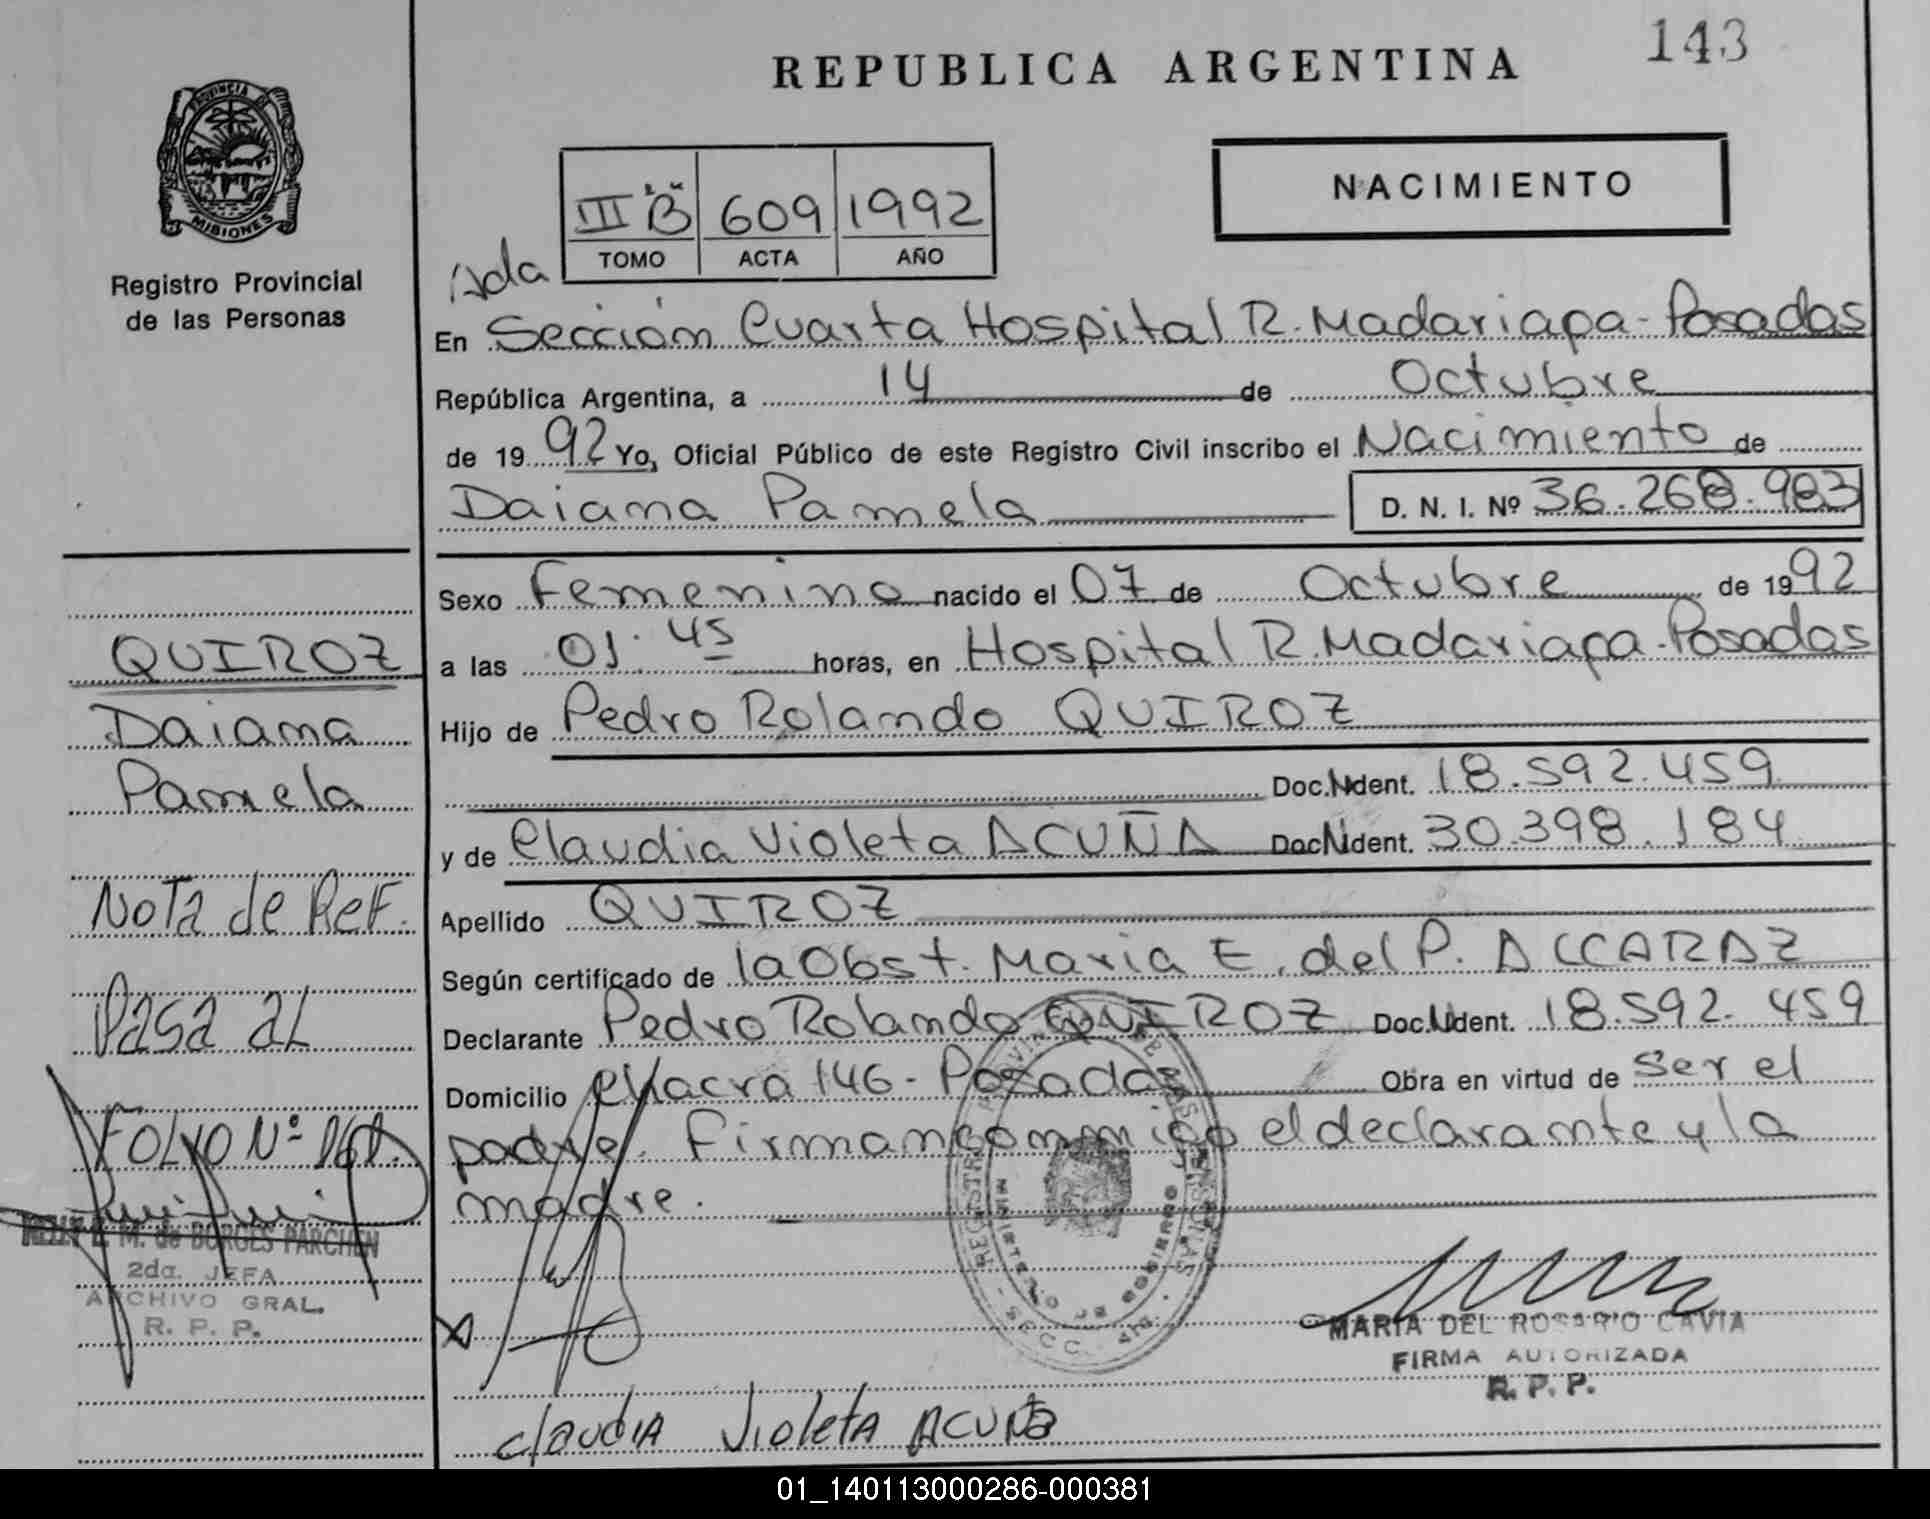 143
REPUBLICA ARGENTINA
PROVINCIA DE
MISIONES
Registro Provincial
de las Personas
NACIMIENTO
III "B" 609 1992
TOMO ACTA AÑO
Ada
En Sección Cuarta Hospital R. Madariaga - Posadas
República Argentina, a 14 de Octubre
de 1992 Yo, Oficial Público de este Registro Civil inscribo el Nacimiento de
Daiana Pamela D. N. I. Nº 36.268.983
Sexo Femenino nacido el 07 de Octubre de 1992
a las 01:45 horas, en Hospital R. Madariaga - Posadas
Hijo de Pedro Rolando QUIROZ
Doc. Ident. 18.592.459
y de Claudia Violeta ACUÑA Doc. Ident. 30.398.184
Apellido QUIROZ
Según certificado de la Obst. Maria E. del P. ALCARAZ
Declarante Pedro Rolando QUIROZ Doc. Ident. 18.592.459
Domicilio Chacra 146 - Posadas Obra en virtud de Ser el
padre. Firman conmigo el declarante y la
madre.
QUIROZ
Daiana
Pamela
Nota de Ref.
Pasa al
Folyo Nº
M. de BORGES PARCHEN
2da. JEFA
ARCHIVO GRAL.
R. P. P.
MINISTERIO DE GOBIERNO
MARIA DEL ROSARIO CAVIA
FIRMA AUTORIZADA
R. P. P.
Claudia Violeta Acuña
01_140113000286-000381